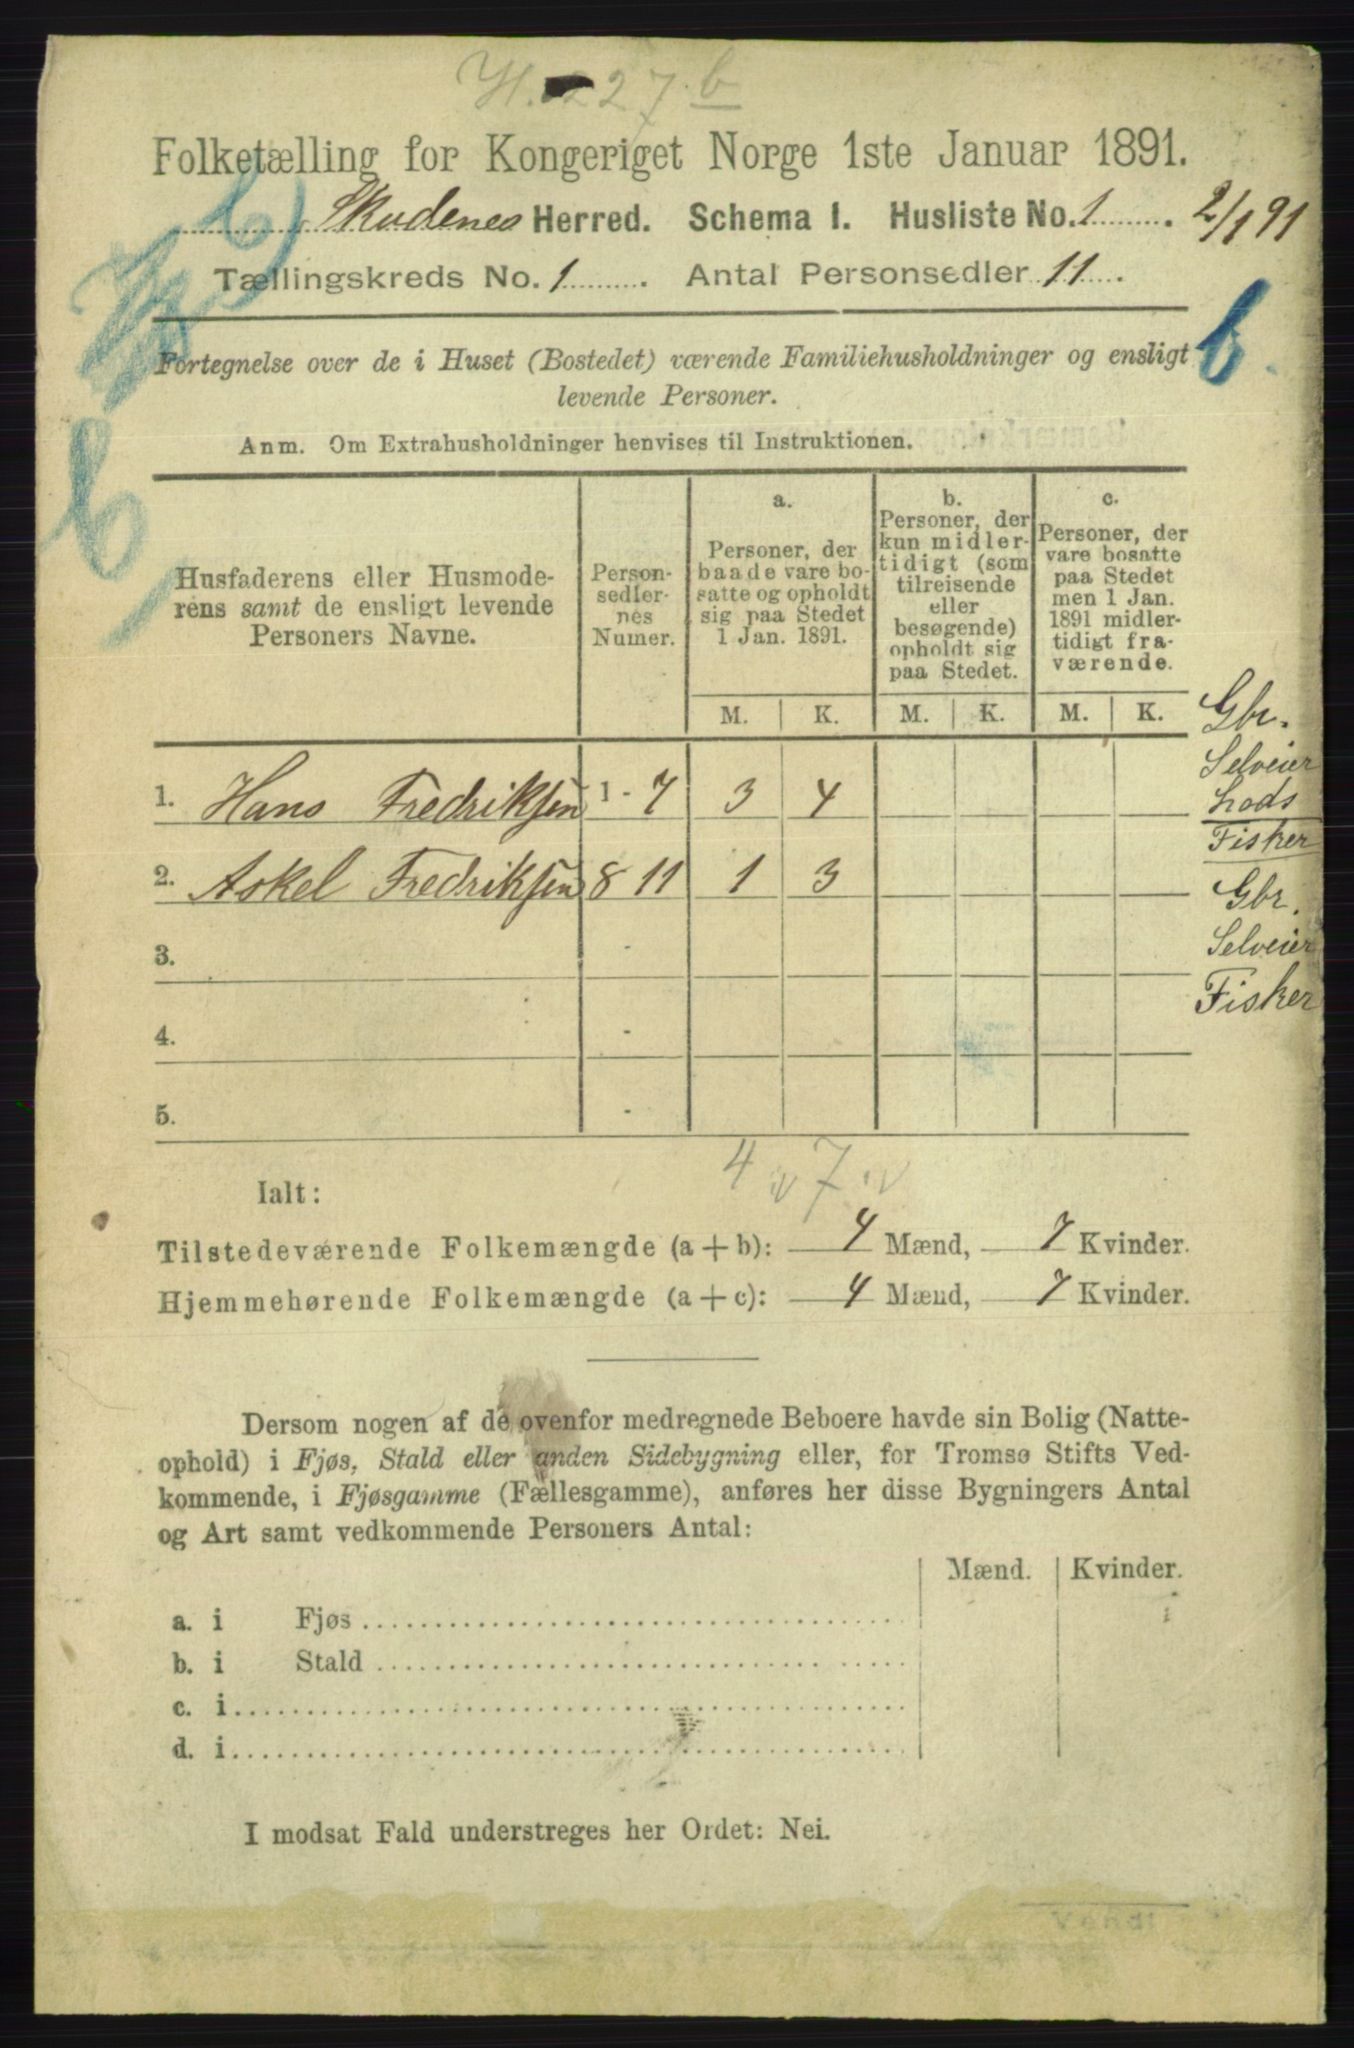 H. 227 b
Folketælling for Kongeriget Norge 1ste Januar 1891.
Skudenes Herred. Schema 1. Husliste No. 1. 2/1 91
Tællingskreds No. 1. Antal Personsedler 11.
b
Fortegnelse over de i Huset (Bostedet) værende Familiehusholdninger og ensligt
levende Personer.
Anm. Om Extrahusholdninger henvises til Instruktionen.
Husfaderens eller Husmode-
rens samt de ensligt levende
Personers Navne.
Person-
sedler-
nes
Numer.
a.
Personer, der
baade vare bo-
satte og opholdt
sig paa Stedet
1 Jan. 1891.
b.
Personer, der
kun midler-
tidigt (som
tilreisende
eller
besøgende)
opholdt sig
paa Stedet.
c.
Personer, der
vare bosatte
paa Stedet
men 1 Jan.
1891 midler-
tidigt fra-
værende.
M. K. M. K. M. K.
1. Hans Fredriksen 1 - 7 3 4
Gbr.
Selveier
Lods
Fisker
2. Askel Fredriksen 8 11 1 3
Gbr.
Selveier
Fisker
3. -
4. -
5. -
4 v 7 v
Ialt:
Tilstedeværende Folkemængde (a + b): 4 Mænd, 7 Kvinder.
Hjemmehørende Folkemængde (a + c): 4 Mænd, 7 Kvinder.
Dersom nogen af de ovenfor medregnede Beboere havde sin Bolig (Natte-
ophold) i Fjøs, Stald eller anden Sidebygning eller, for Tromsø Stifts Ved-
kommende, i Fjøsgamme (Fællesgamme), anføres her disse Bygningers Antal
og Art samt vedkommende Personers Antal:
Mænd. Kvinder.
a. i Fjøs
b. i Stald
c. i
d. i
I modsat Fald understreges her Ordet: Nei.
Vend!